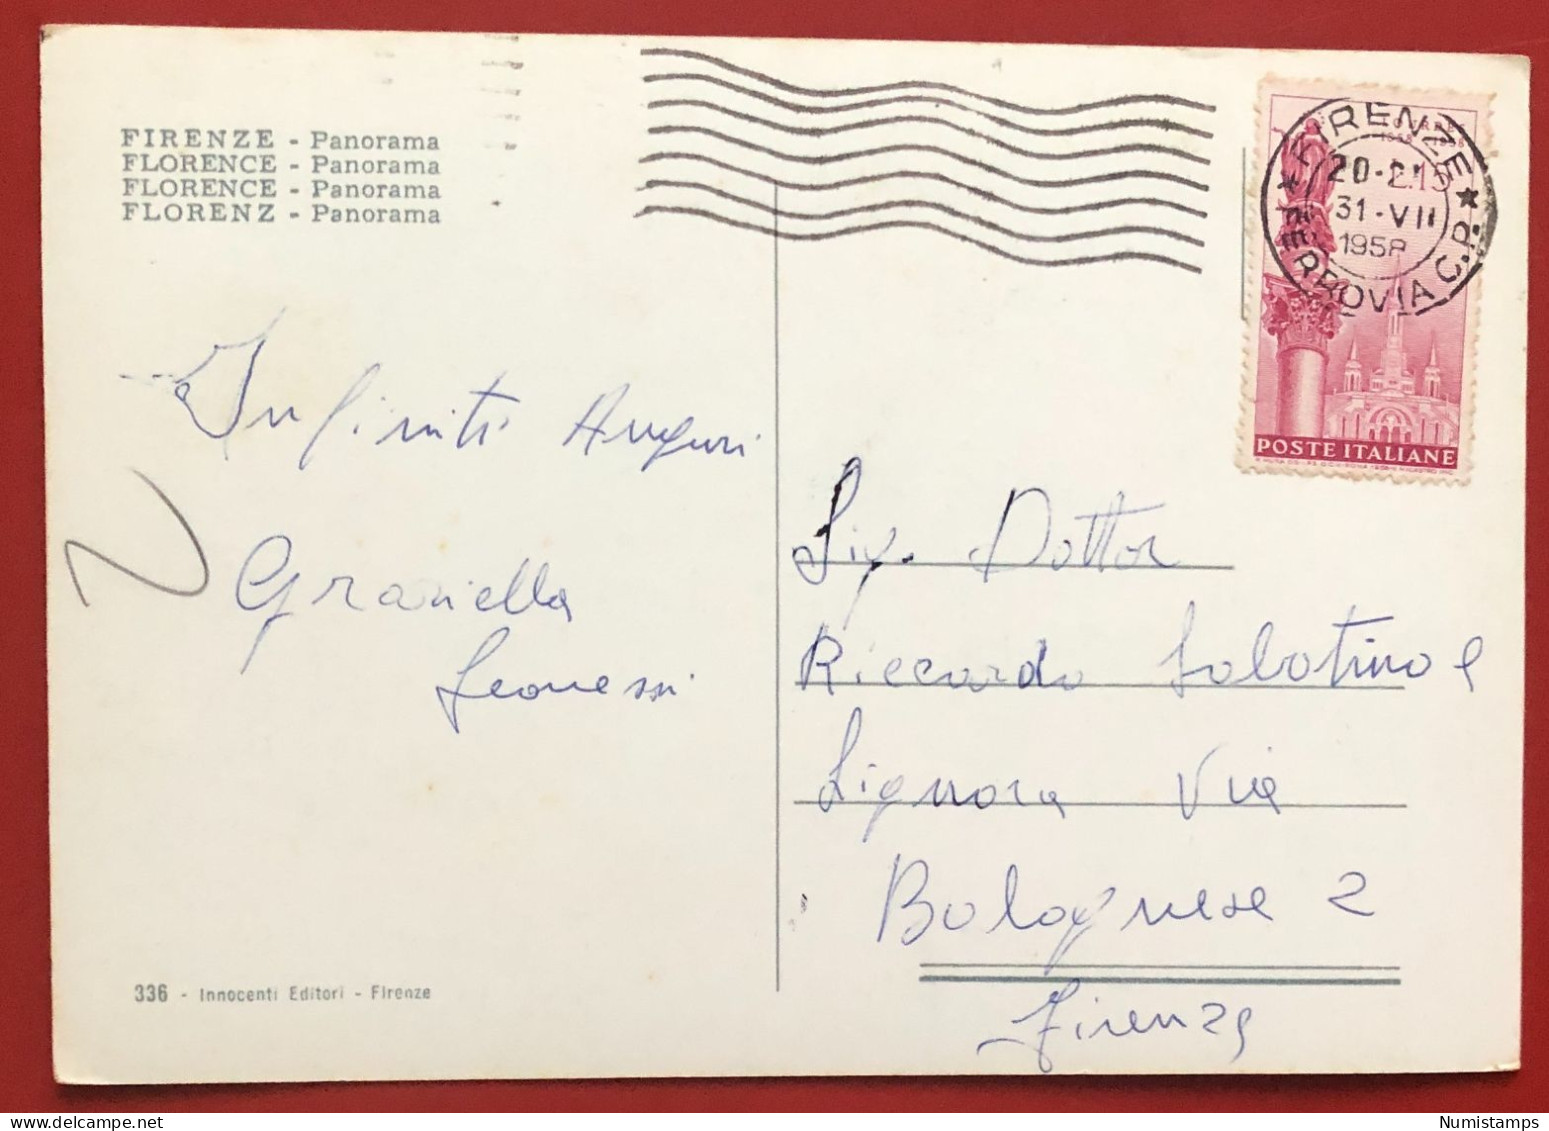 FIRENZE - Panorama
FLORENCE - Panorama
FLORENCE - Panorama
FLORENZ - Panorama
Infiniti Auguri
Graziella
Leonessi
336 - Innocenti Editori - Firenze
FIRENZE
31-VII
1958
FERROVIA C.P.
POSTE ITALIANE
Sig. Dottor
Riccardo Sabatino e
Signora Via
Bolognese 2
Firenze
Numistamps